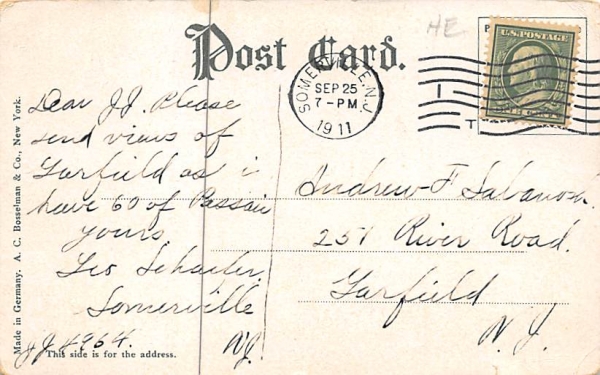 HE
Post Card.
SOMERVILLE, N.J.
SEP 25
7-PM
1911
U.S. POSTAGE
Dear JJ. Please
send views of
Garfield as i
have 60 of Passaic
yours
Geo Schaefer,
Somerville
JJ 4964. N.J.
Andrew F.
251 River Road.
Garfield
N.J.
Made in Germany. A. C. Bosselman & Co., New York.
This side is for the address.